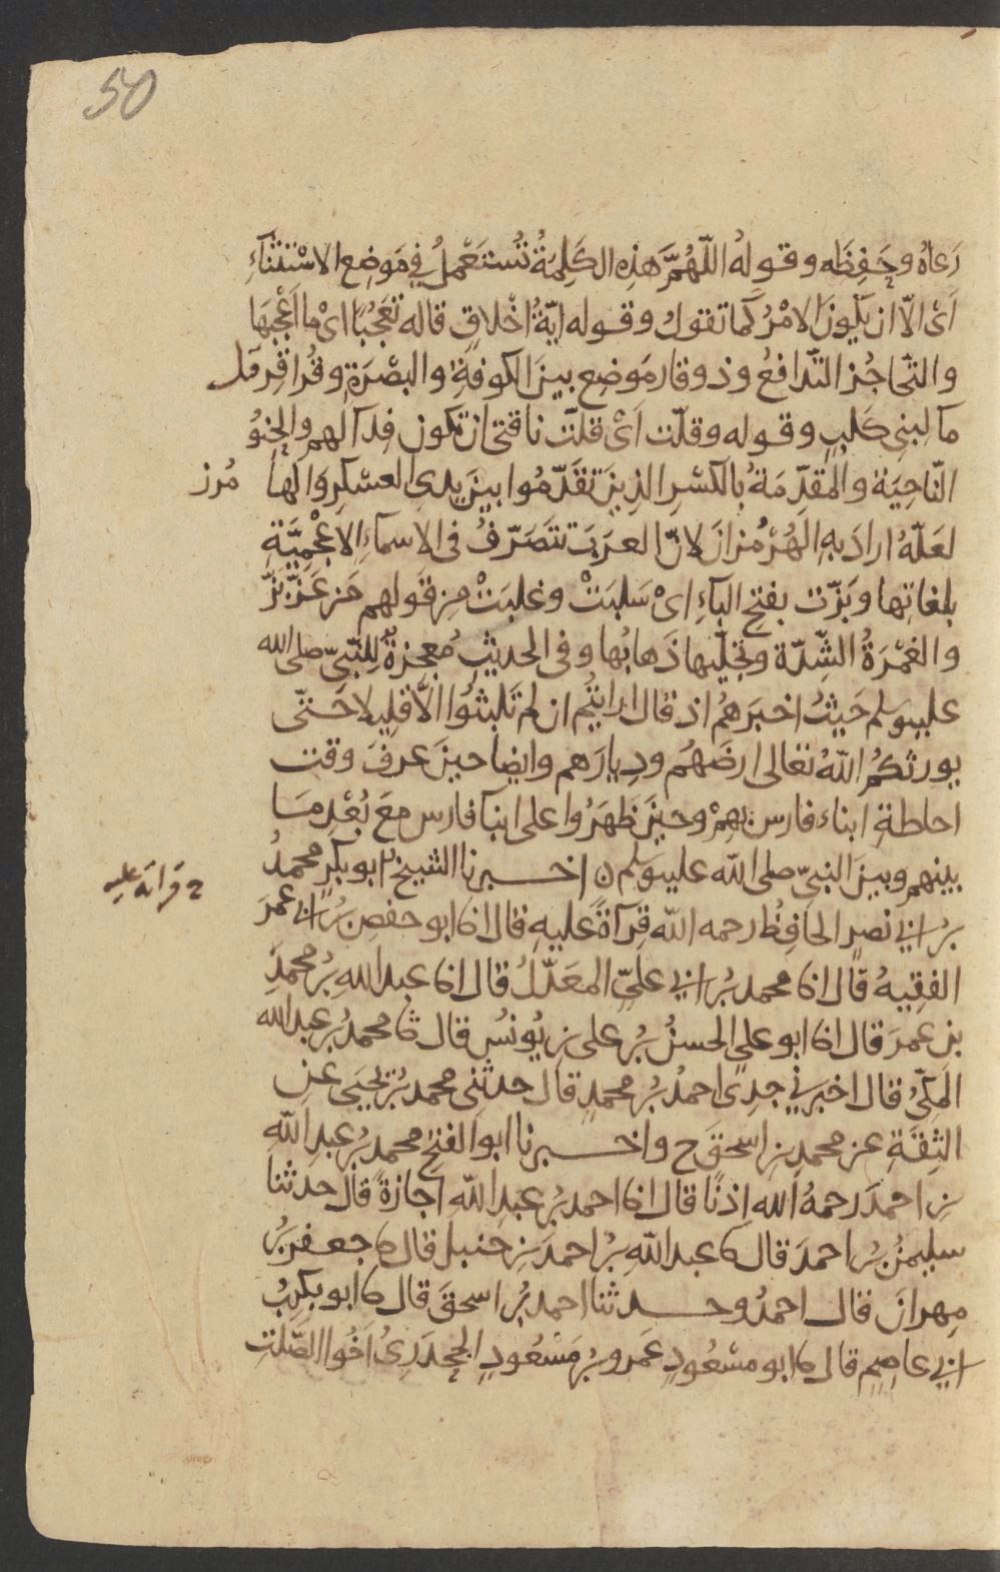 50
رَعاهُ وحَفِظَه وقوله اللّهُمَّ هَذِه الكَلِمَةُ تُستَعْملُ في مَوضِع الاسْتثنَآءِ
اَىْ الّا ان يكُونَ الامْرُ كما تقولُ وقوله ايّةُ اخْلاقٍ قاله تعَجُبًا اىْ ما اَعْجَبهَا
والتّحاجُز التّدافعُ وذو قار مَوضِع بين الكوفةِ والبصْرَةِ وقُراقِر مَا
مآ لبنى كَلبٍ وقوله وقلّت اَىْ قلّت ناقتى ان تكون فِدآ لهم والحِنوُ
النّاحِيَة والمقدِّمَةُ بالكسْرِ الذِينَ تقدَّمُوا بين يدىِ العسْكرِ وَالها مُرز
لعَلّهُ ارادَ بهِ الهُرْمُزانَ لانّ العرَبَ تتَصَرّفُ فى الاسمآءِ الاعْجَمِيَّةِ
بلغاتِها وبَزّت بفتحِ البآءِ اىْ سَلبَتْ وغلبَتْ مِن قولهم مَن عَزّ بَزّ
والغمْرَةُ الشِّدّة وتجلّيها ذَهابُها وفى الحديثِ مُعجِزةٌ للنّبىّ صلى الله
عليه وسلم حَيثُ اخبرَهُم اذ قال ارايتُم ان لم تَلبثُوا الّا قليلا حَتّى
يورثكمُ اللّهُ تعالى ارضَهُم ودِيارَهم وايضا حينَ عرفَ وقت
احاطةِ ابناء فارس بهِمْ وحينَ ظهَرُوا على ابنآ فارس معَ بُعْدِ مَا
بينهم وبينَ النبىّ صلى الله عليه وسلم ن اخــبرنا الشيخ ابو بكرٍ محمدُ
قراة عليه
بنُ ابي نصرٍ الحافِظُ رحمه اللّه قِرآةً عليهِ قال انا ابو حفصٍ بنُ ابي عمرَ
الفقِيهُ قال انا محمد بنُ ابي علىّ المعَدّلُ قال انا عبد اللّهِ بنُ محمدِ
بن عمرَ قال انا ابو علي الحسنُ بنُ على بن يُونسُ قال ثنا محمدُ بنُ عبد الله
المكّىُّ قال اخبرني جدى احمدُ بنُ محمدٍ قال حدثنى محمد بنُ يحيَى عنِ
الثِقَةِ عن محمدِ بن اسحقَ ح واخــبرنا ابو الفتح محمد بنُ عبدِ اللّهِ
بنِ احمدَ رحمهُ الله اِذنًا قال انا احمد بنُ عبدِ اللّهِ اجازةً قال حدثنا
سليمنُ بنُ احمدَ قال نا عبد اللّهِ بنُ احمدَ بنِ حنبل قال نا جعفر بنُ
مِهرانَ قال احمدُ وحــدثنا احمد بنُ اسحقَ قال نا ابو بكرِ بنُ
ابي عاصِمٍ قال نا ابو مسْعُودٍ عَمرو بنُ مَسْعُودٍ الجحْدَرِىُّ اَخُوا الصّلتِ